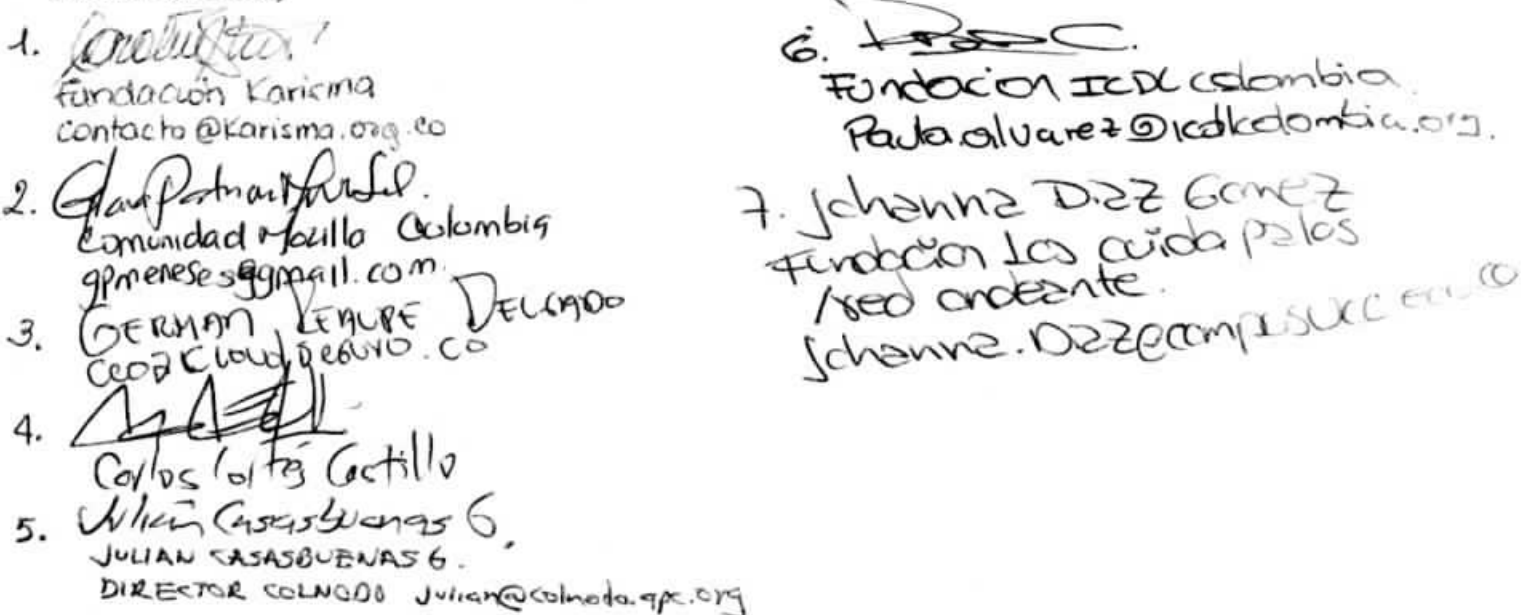 1.
Fundación Karisma
contacto@karisma.org.co
2.
Comunidad Mozilla Colombia
gpmeneses@gmail.com
3. GERMAN REALPE DELGADO
CEO@CLOUDSEGURO.CO
4.
Carlos Cortés Castillo
5. Julián Casasbuenas G.
JULIAN CASASBUENAS G.
DIRECTOR COLNODO julian@colnodo.apc.org
6.
Fundacion ICDL colombia
Paula.alvarez@icdlcolombia.org.
7. Johanna Diaz Gomez
Fundación los cuida palos
/red andante.